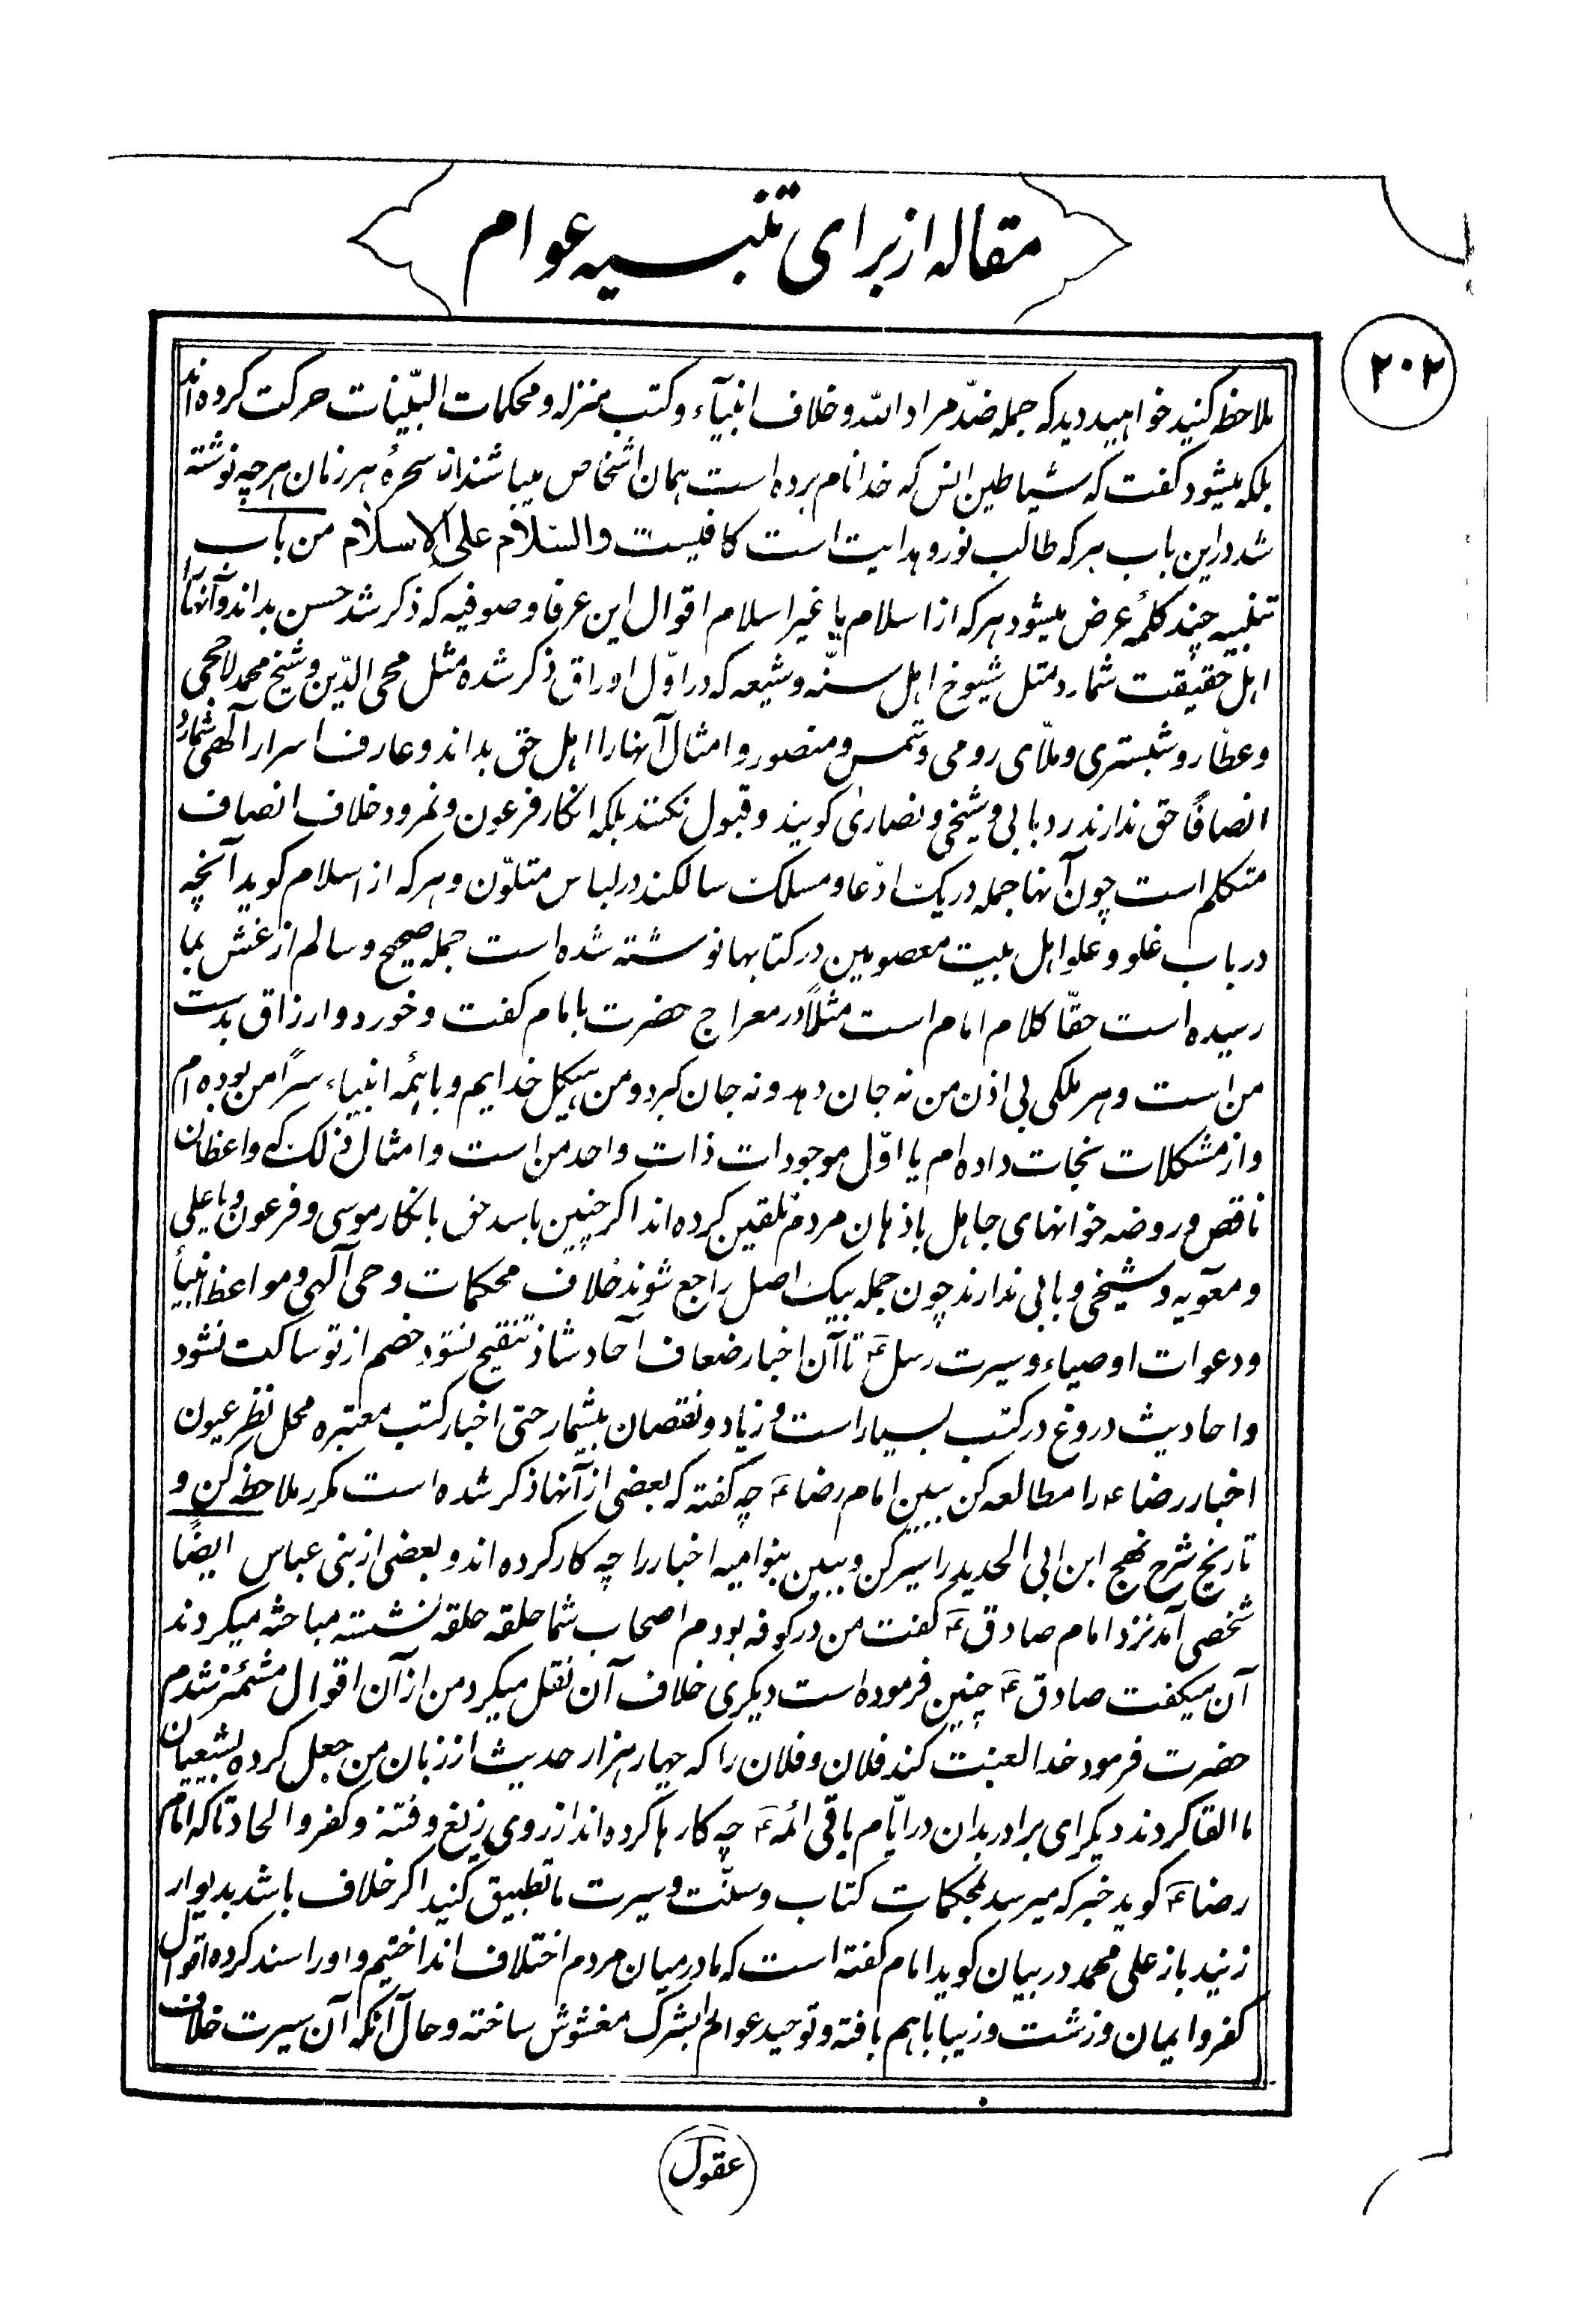 مقاله از برای تنبیه عوام
۲۰۲
ملاحظه کنید خواهید دید که جمله ضدّ مراد الله و خلاف انبیآء و کتب منزله و محکمات البیّنات حرکت کرده‌اند
بلکه میشود کفت که شیاطین انس که خدا نام برده است همان اشخاص میباشند از سحرۀ هر زمان هرچه نوشته
شد در این باب هرکه طالب نور و هدایت است کافیست والسّلام علی الاسلام من باب
تنبیه چند کلمه عرض میشود هرکه از اسلام یا غیر اسلام اقوال این عرفا و صوفیه که ذکر شد حسن بداند و آنها را
اهل حقیقت شمارد مثل شیوخ اهل سنّه و شیعه که در اوّل اوراق ذکر شده مثل محی الدّین و شیخ محمد لاهجی
و عطّار و شبستری و ملّای رومی و شمس و منصور و امثال آنها را اهل حق بداند و عارف اسرار آلهی شمارد
انصافاً حق ندارند رد بابی و شیخی و نصاری کویند و قبول نکنند بلکه انکار فرعون و نمرود خلاف انصاف
متکلم است چون آنها جمله در یک ادّعا و مسلک سالکند در لباس متلوّن و هرکه از اسلام کوید آنچه
در باب غلو و علو اهل بیت معصومین در کتابها نوشته شده است جمله صحیح و سالم از غش بما
رسیده است حقّا کلام امام است مثلاً در معراج حضرت با امام کفت و خورد و ارزاق بدست
من است و هر ملکی بی اذن من نه جان دهد و نه جان کیرد و من هیکل خدایم و با همۀ انبیاء سراً من بوده‌ام
و از مشکلات نجات داده‌ام یا اوّل موجودات ذات واحد من است و امثال ذلک که واعظان
ناقص و روضه خوانهای جاهل باذهان مردم تلقین کرده‌اند اکر چنین باشد حق بانکار موسی و فرعون و یا علی
و معویه و شیخی و بابی ندارند چون جمله بیک اصل راجع شوند خلاف محکمات وحی آلهی و مواعظ انبیآء
و دعوات اوصیاء و سیرت رسل ع تا آن اخبار ضعاف آحاد شاذ تنقیح نشود خصم از تو ساکت نشود
و احادیث دروغ در کتب بسیار است و زیاد و نقصان بیشمار حتی اخبار کتب معتبره محل نظر عیون
اخبار رضا ع را مطالعه کن ببین امام رضا ع چه کفته که بعضی از آنها ذکر شده است مکرر ملاحظه کن و
تاریخ شرح نهج ابن ابی الحدید را سیر کن و ببین بنوامیه اخبار را چه کار کرده‌اند و بعضی از بنی عباس ایضاً
شخصی آمد نزد امام صادق ع کفت من در کوفه بودم اصحاب شما حلقه حلقه نشسته مباحثه میکردند
آن میکفت صادق ع چنین فرموده است دیکری خلاف آن نقل میکرد من از آن اقوال مشمئز شدم
حضرت فرمود خدا لعنت کند فلان و فلان را که چهار هزار حدیث از زبان من جعل کرده بشیعیان
ما القا کردند دیکر ای برادر بدان در ایّام باقی ائمه ع چه کارها کرده‌اند از روی زیغ و فتنه و کفر و الحاد تا که امام
رضا ع کوید خبر که میرسد بمحکمات کتاب و سنّت و سیرت ما تطبیق کنید اکر خلاف باشد بدیوار
زنید باز علی محمد در بیان کوید امام کفته است که ما در میان مردم اختلاف انداختیم و او را سند کرده اقوال
کفر و ایمان و زشت و زیبا باهم بافته و توحید عوالم بشرک مغشوش ساخته و حال آنکه آن سیرت خلاف
عقول